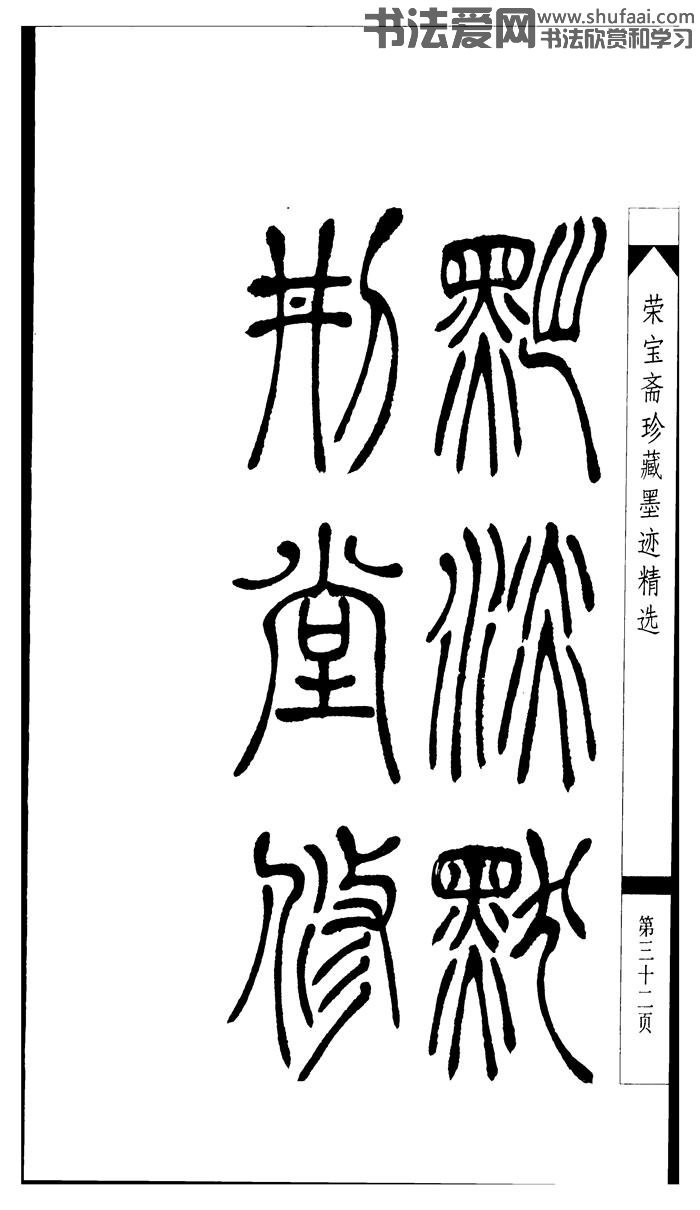 书法爱网 www.shufaai.com
书法欣赏和学习
荣宝斋珍藏墨迹精选
第三十二页
淡默
刑堂修